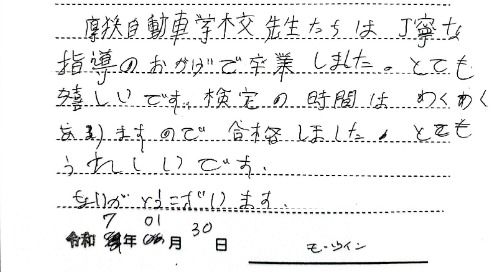 摩秩自動車学校 先生たちは 丁寧な
指導のおかげで卒業しました。とても
嬉しいです。検定の時間は わくわく
あります ので 合格しました。とても
うれしいです.
ありがとうございます.
令和 7年 01月 30日 モーウィン